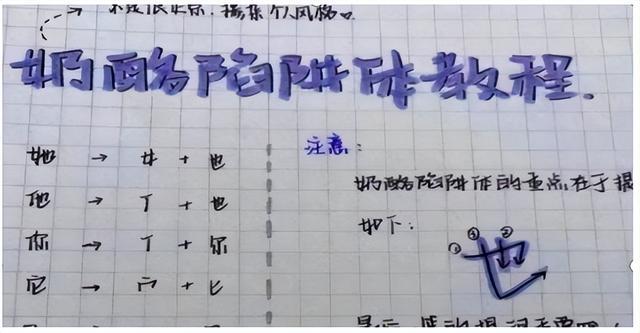 不是很正宗.掺杂个人风格。
奶酪陷阱体教程.
她 → 女 + 也
他 → 亻 + 也
你 → 亻 + 尔
它 → 宀 + 匕
注意:
奶酪陷阱体的重点在于提
如下:
① ③ ②
也